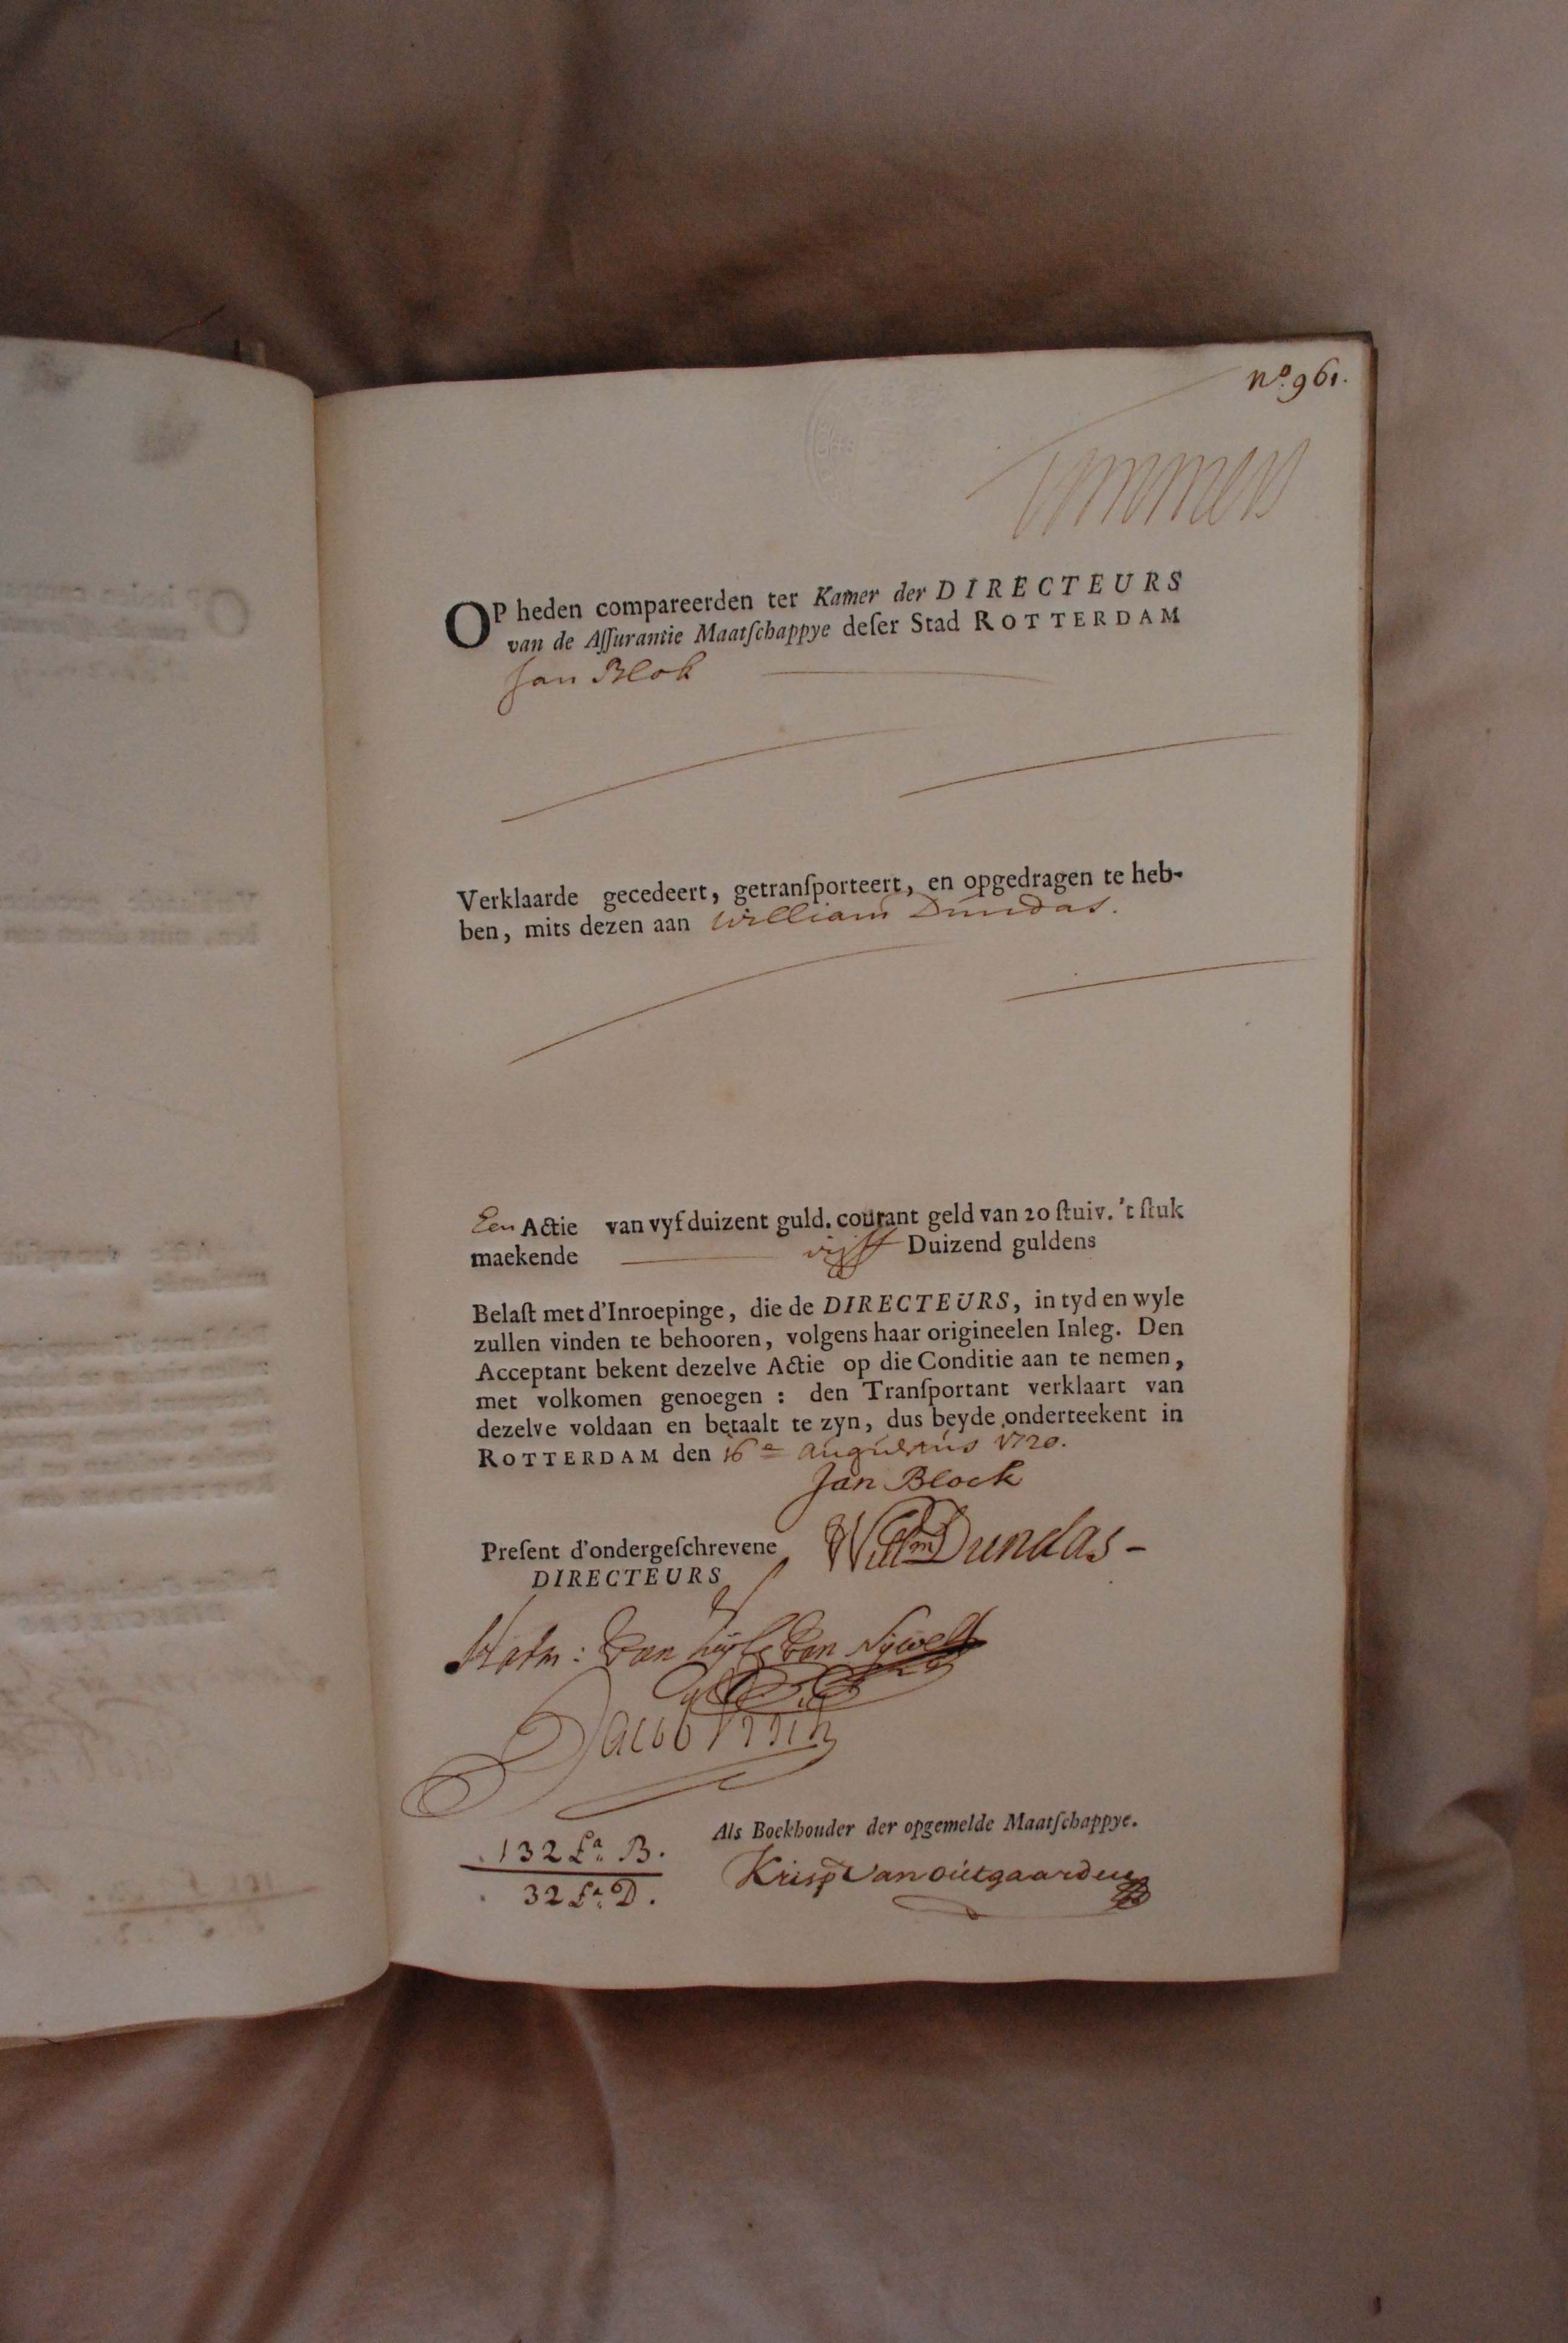 No. 961.
OP heden compareerden ter Kamer der DIRECTEURS
van de Aſſurantie Maatſchappye deſer Stad ROTTERDAM
Jan Blok
Verklaarde gecedeert, getranſporteert, en opgedragen te heb-
ben, mits dezen aan William Dundas.
Een Actie van vyf duizent guld. courant geld van 20 ſtuiv. 't ſtuk
maekende vijff Duizend guldens
Belaſt met d'Inroepinge, die de DIRECTEURS, in tyd en wyle
zullen vinden te behooren, volgens haar origineelen Inleg. Den
Acceptant bekent dezelve Actie op die Conditie aan te nemen,
met volkomen genoegen : den Tranſportant verklaart van
dezelve voldaan en betaalt te zyn, dus beyde onderteekent in
ROTTERDAM den 16e Augustus 1720.
Jan Block
Willm Dundas
Preſent d'ondergeſchrevene
DIRECTEURS
van Zuylen van Nijvelt
Jacob
Als Boekhouder der opgemelde Maatſchappye.
132 La. B.
Krisp van Outgaarden
32 La. D.